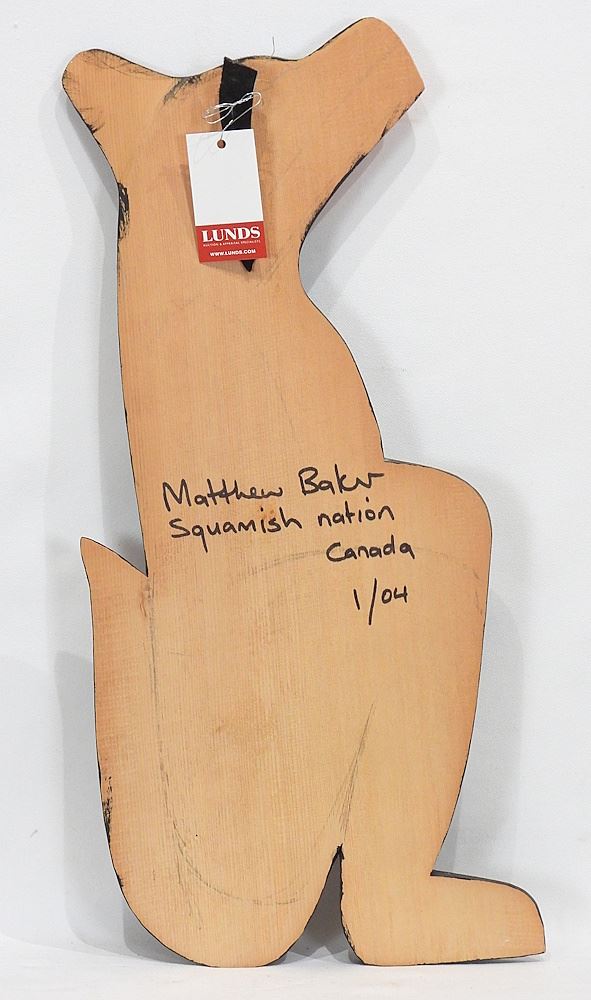 LUNDS
AUCTION & APPRAISAL SPECIALISTS
WWW.LUNDS.COM
Matthew Baker
Squamish nation
Canada
1/04